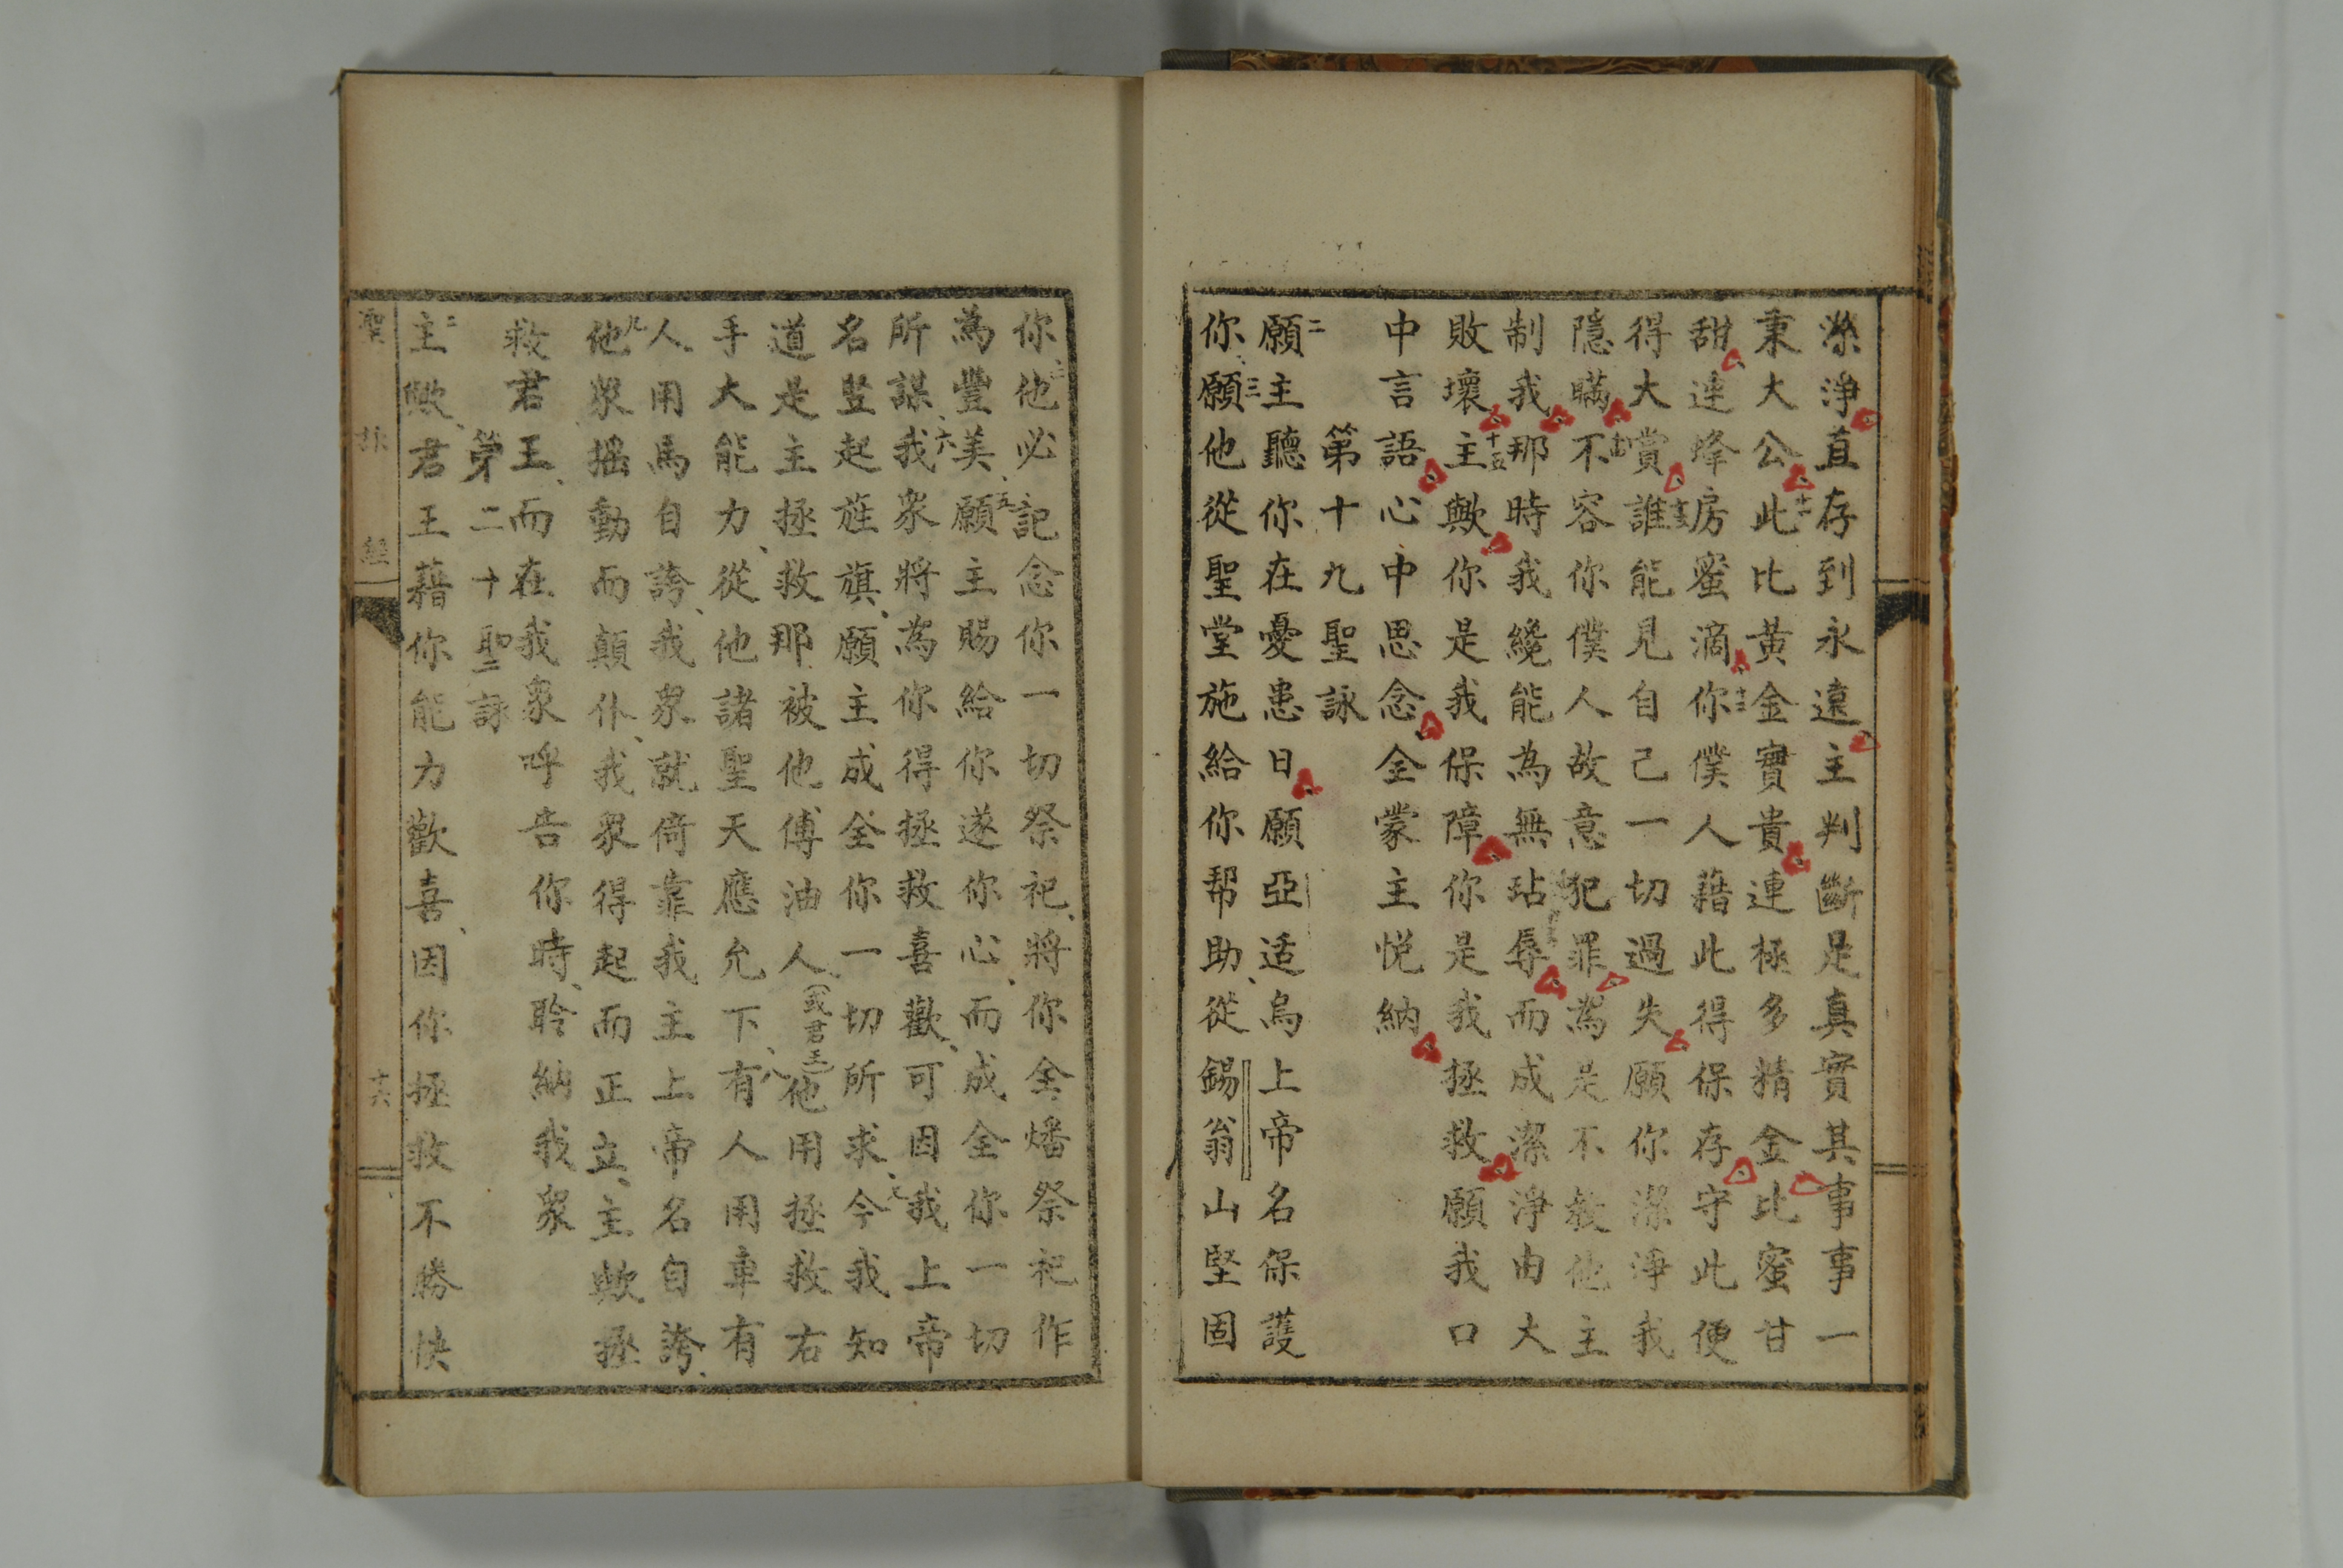 潔淨直存到永遠主判斷是真實其事事一
秉大公十一此比黃金實貴連極多精金比蜜甘
甜連烽房蜜滴十二你僕人藉此得保存守此便
得大賞十三誰能見自己一切過失願你潔淨我
隱瞞十四不容你僕人故意犯罪為是不教他主
制我那時我纔能為無玷辱而成潔淨由大
敗壞十五主歟你是我保障你是我拯救願我口
中言語心中思念全蒙主悅納
第十九聖詠
二願主聽你在憂患日願亞适烏上帝名保護
你三願他從聖堂施給你帮助從錫翁山堅固
你他必記念你一切祭祀將你全燔祭祀作
為豐美五願主賜給你遂你心而成全你一切
所謀六我衆將為你得拯救喜歡可因我上帝
名豎起旌旗願主成全你一切所求七今我知
道是主拯救那被他傅油人(或君王)他用拯救右
手大能力從他諸聖天應允下八有人用車有
人用馬自誇我衆就倚靠我主上帝名自誇
九他衆搖動而顛仆我衆得起而正立主歟拯
救君王而在我衆呼告你時聆納我衆
第二十聖詠
二主歟君王藉你能力歡喜因你拯救不勝快
聖詠經
十六